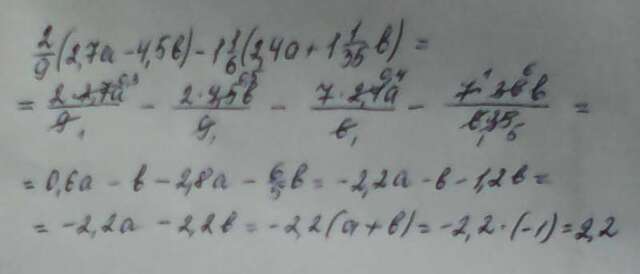 2/9(2,7a - 4,5в) - 1 1/6(2,4a + 1 1/35 в) =
= 2·2,7a/9 - 2·4,5в/9 - 7·2,4a/6 - 7·36в/6·35 =
= 0,6a - в - 2,8a - 6/5в = -2,2a - в - 1,2в =
= -2,2a - 2,2в = -2,2(a+в) = -2,2·(-1) = 2,2